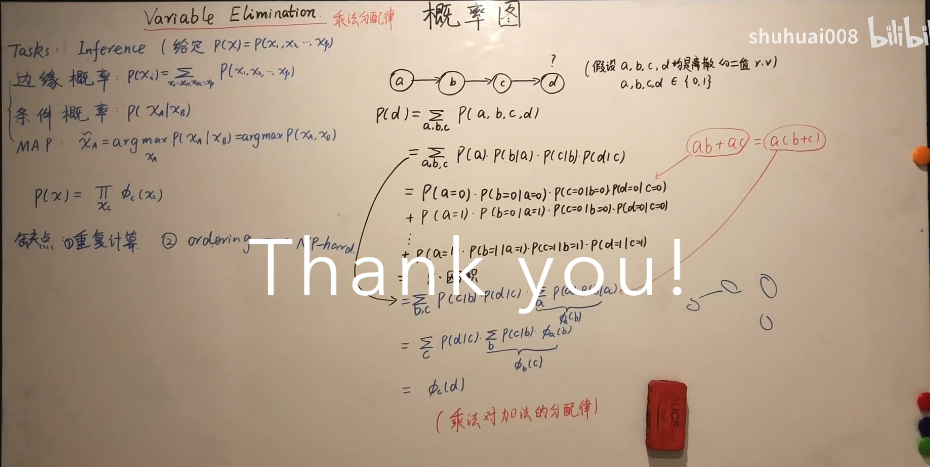 Variable Elimination 乘法分配律 概率图
shuhuai008 bilibili
Tasks: Inference (给定 P(X)=P(x₁,x₂…xₚ)
边缘概率: P(x₁)=∑ P(x₁,x₂,…xₚ)
条件概率: P(x_A|x_B)
MAP: x̂_A = argmax P(x_A|x_B) = argmax P(x_A,x_B)
x_A
P(x) = ∏ ϕc(xc)
xc
缺点 ①重复计算 ② ordering — NP-hard
?
a b c d
(假设 a,b,c,d 均是离散的二值 r.v)
a,b,c,d ∈ {0,1}
P(d) = ∑ P(a,b,c,d)
a,b,c
= ∑ P(a)·P(b|a)·P(c|b)·P(d|c)
a,b,c
ab+ac = a(b+c)
= P(a=0)·P(b=0|a=0)·P(c=0|b=0)·P(d=0|c=0)
+ P(a=1)·P(b=0|a=1)·P(c=0|b=0)·P(d=0|c=0)
⋮
+ P(a=1)·P(b=1|a=1)·P(c=1|b=1)·P(d=1|c=1)
Thank you!
= ∑ P(c|b)·P(d|c)·∑ P(a)·P(b|a)
b,c a
ϕa(b)
= ∑ P(d|c)·∑ P(c|b)·ϕa(b)
c b
ϕb(c)
= ϕc(d)
(乘法对加法的分配律)